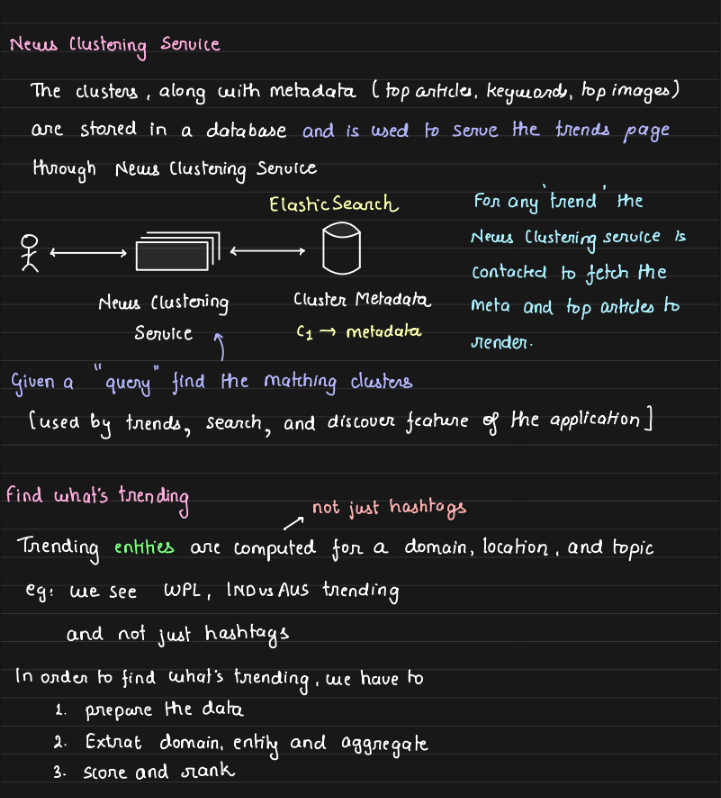 News Clustering Service
The clusters, along with metadata (top articles, keywords, top images)
are stored in a database and is used to serve the trends page
through News Clustering Service
ElasticSearch
News Clustering
Service
Cluster Metadata
C1 → metadata
For any 'trend' the
News Clustering service is
contacted to fetch the
meta and top articles to
render.
Given a "query" find the matching clusters
[used by trends, search, and discover feature of the application]
Find what's trending
not just hashtags
Trending entities are computed for a domain, location, and topic
eg: we see WPL, IND vs AUS trending
and not just hashtags
In order to find what's trending, we have to
1. prepare the data
2. Extrat domain, entity and aggregate
3. score and rank